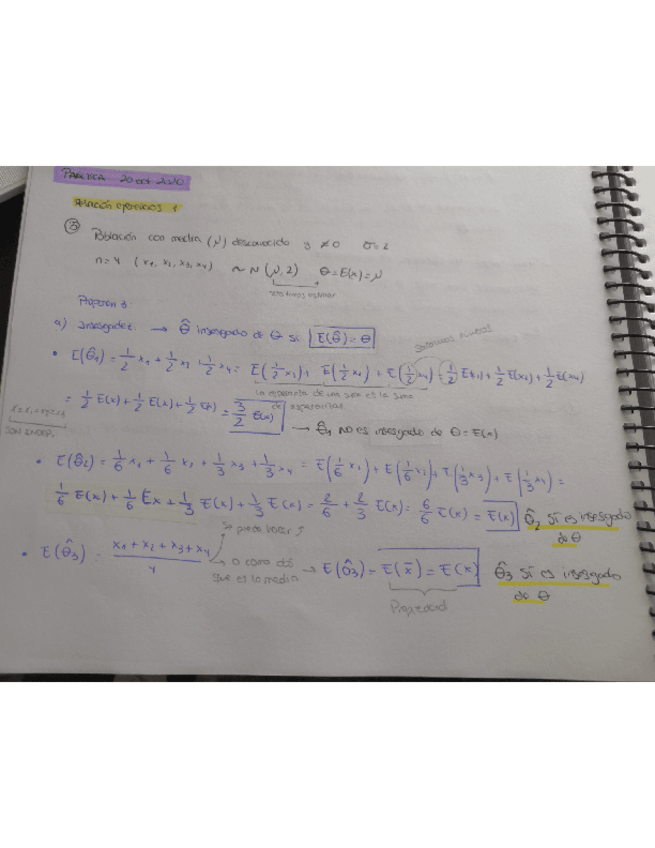 PRÁCTICA 20 oct 2020
Relación ejercicios 1
Población con media (μ) desconocida y ≠0 σ=2
n=4 (x1, x2, x3, x4) ~ N(μ,2) θ=E(x)=μ
Proponen 3:
a) Insesgadez → θ̂ insesgado de θ si E(θ̂)=θ
• E(θ̂1) = 1/2 x1 + 1/2 x2 + 1/2 x4 = E(1/2 x1) + E(1/2 x2) + E(1/2 x4) = 1/2 E(x1) + 1/2 E(x2) + 1/2 E(x4)
La esperanza de una suma es la suma
de esperanzas
= 1/2 E(x) + 1/2 E(x) + 1/2 E(x) = 3/2 E(x) → θ̂1 NO es insesgado de θ=E(x)
SON INDEP.
• E(θ̂2) = 1/6 x1 + 1/6 x2 + 1/3 x3 + 1/3 x4 = E(1/6 x1) + E(1/6 x2) + E(1/3 x3) + E(1/3 x4) =
1/6 E(x) + 1/6 Ex + 1/3 E(x) + 1/3 E(x) = 2/6 + 2/3 E(x) = 6/6 E(x) = E(x) θ̂2 SÍ es insesgado
de θ
Se puede hacer
• E(θ̂3) = x1 + x2 + x3 + x4 / 4 → o como
que es la media → E(θ̂3) = E(x̄) = E(x) θ̂3 SÍ es insesgado
de θ
Propiedad